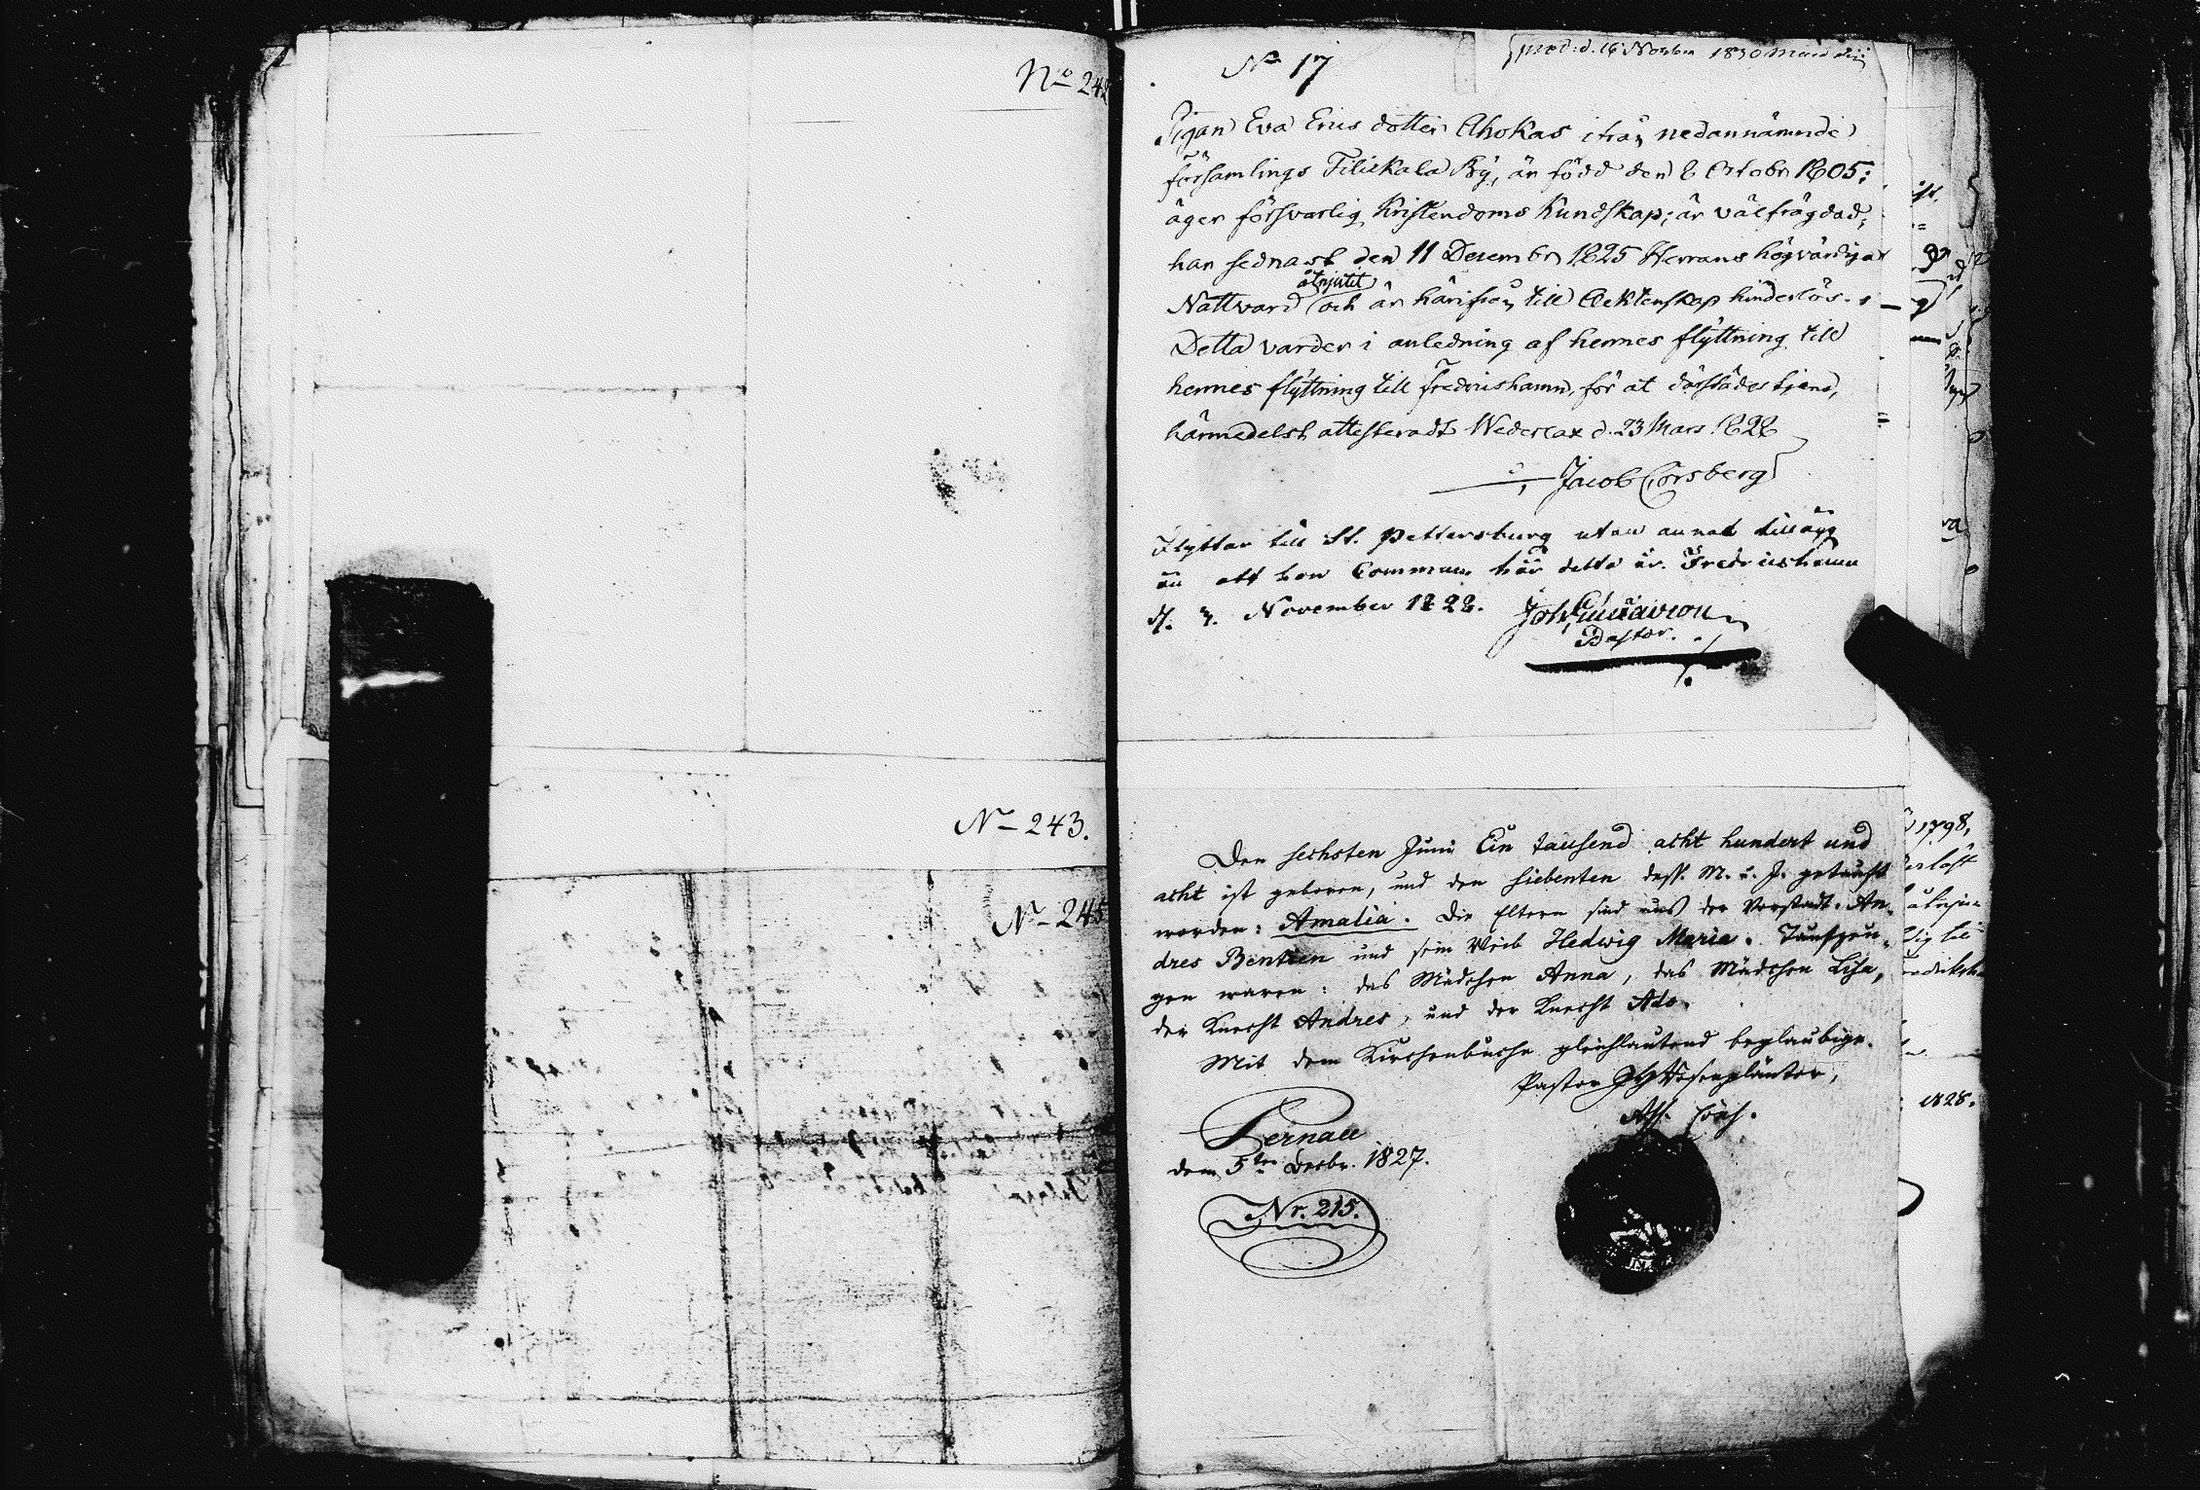 No 242
No 243.
No 245
No 17
prod: d. 16 Novbr 1830
Pigan Eva Erics dotter Ahokas ifrån nedannämnde
församlings Tiliekala By, är född den 8 Octobr 1805;
äger försvarlig Kristendoms Kundskap; är välfrägdad;
har sednast den 11 Decembr 1825 Herrans högvärdiga
Nattvard åtnjutit och är härifrån till Aektenskap hinderlös.
Detta varder i anledning af hennes flyttning till
hennes flyttning till Fredricshamn, för at därstädes tjena,
härmedelst attesteradt Wederlax d. 23 Mars 1828
Jacob Forsberg
Flyttar till St. Pettersburg utan annat tillägg
än att hon Commun. här detta år. Fredricshamn
d. 3. November 1828.
Pastor.
Den sechsten Juni Ein tausend acht hundert und
acht ist geboren, und den siebenten dess. M. u. J. getauft
worden: Amalia. Die Eltern sind aus der Vorstadt: An-
dres Bentsen und sein Weib Hedwig Maria. Taufzeu-
gen waren: das Mädchen Anna, das Mädchen Lisa,
der Knecht Andres, und der Knecht Ado.
Mit dem Kirchenbuche gleichlautend beglaubige.
Pastor J H Rosenplänter,
Pernau
dem 5ten Decbr. 1827.
Nr. 215.
1798,
1828.